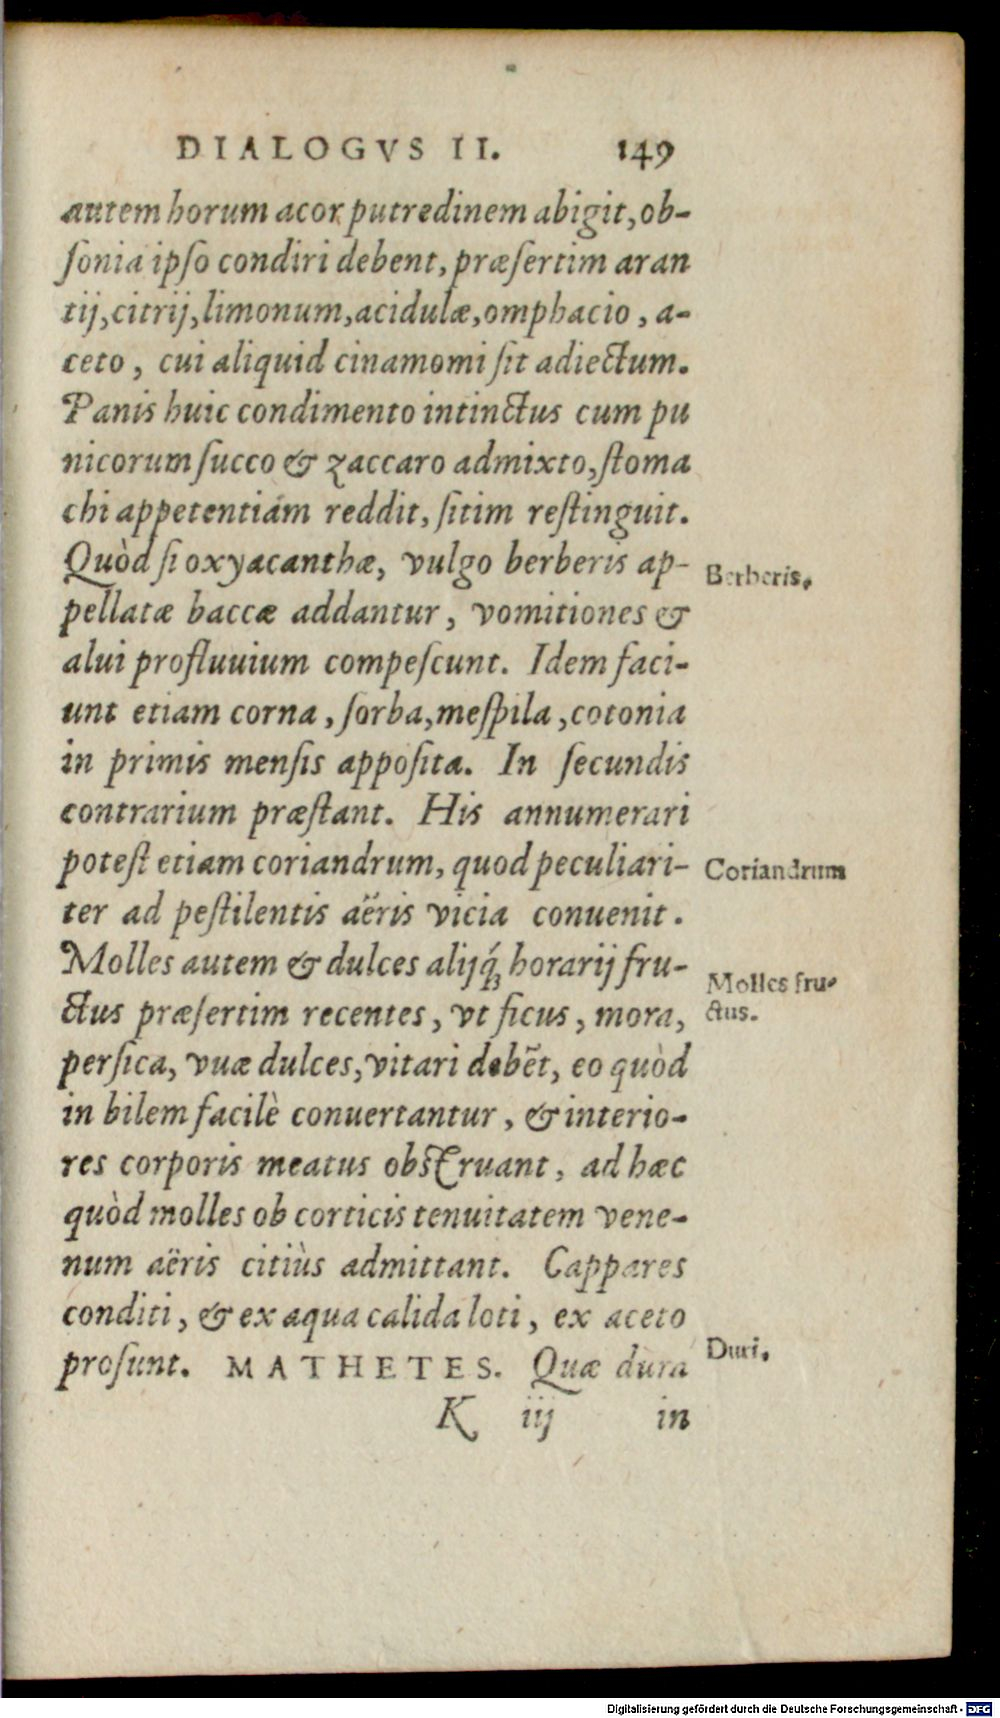 DIALOGVS II. 149
autem horum acor putredinem abigit, ob-
ſonia ipſo condiri debent, præſertim aran
tij, citrij, limonum, acidulæ, omphacio, a-
ceto, cui aliquid cinamomi ſit adiectum.
Panis huic condimento intinctus cum pu
nicorum ſucco & zaccaro admixto, ſtoma
chi appetentiam reddit, ſitim reſtinguit.
Quòd ſi oxyacanthæ, vulgo berberis ap-
Berberis.
pellatæ baccæ addantur, vomitiones &
alui profluuium compeſcunt. Idem faci-
unt etiam corna, ſorba, meſpila, cotonia
in primis menſis appoſita. In ſecundis
contrarium præſtant. His annumerari
poteſt etiam coriandrum, quod peculiari-
Coriandrum
ter ad peſtilentis aëris vicia conuenit.
Molles autem & dulces alijq́; horarij fru-
Molles fru-
ctus præſertim recentes, vt ficus, mora,
ctus.
perſica, vuæ dulces, vitari debẽt, eo quòd
in bilem facilè conuertantur, & interio-
res corporis meatus obſtruant, ad hæc
quòd molles ob corticis tenuitatem vene-
num aëris citiùs admittant. Cappares
conditi, & ex aqua calida loti, ex aceto
proſunt. MATHETES. Quæ dura
Duri.
K iij in
Digitalisierung gefördert durch die Deutsche Forschungsgemeinschaft - DFG